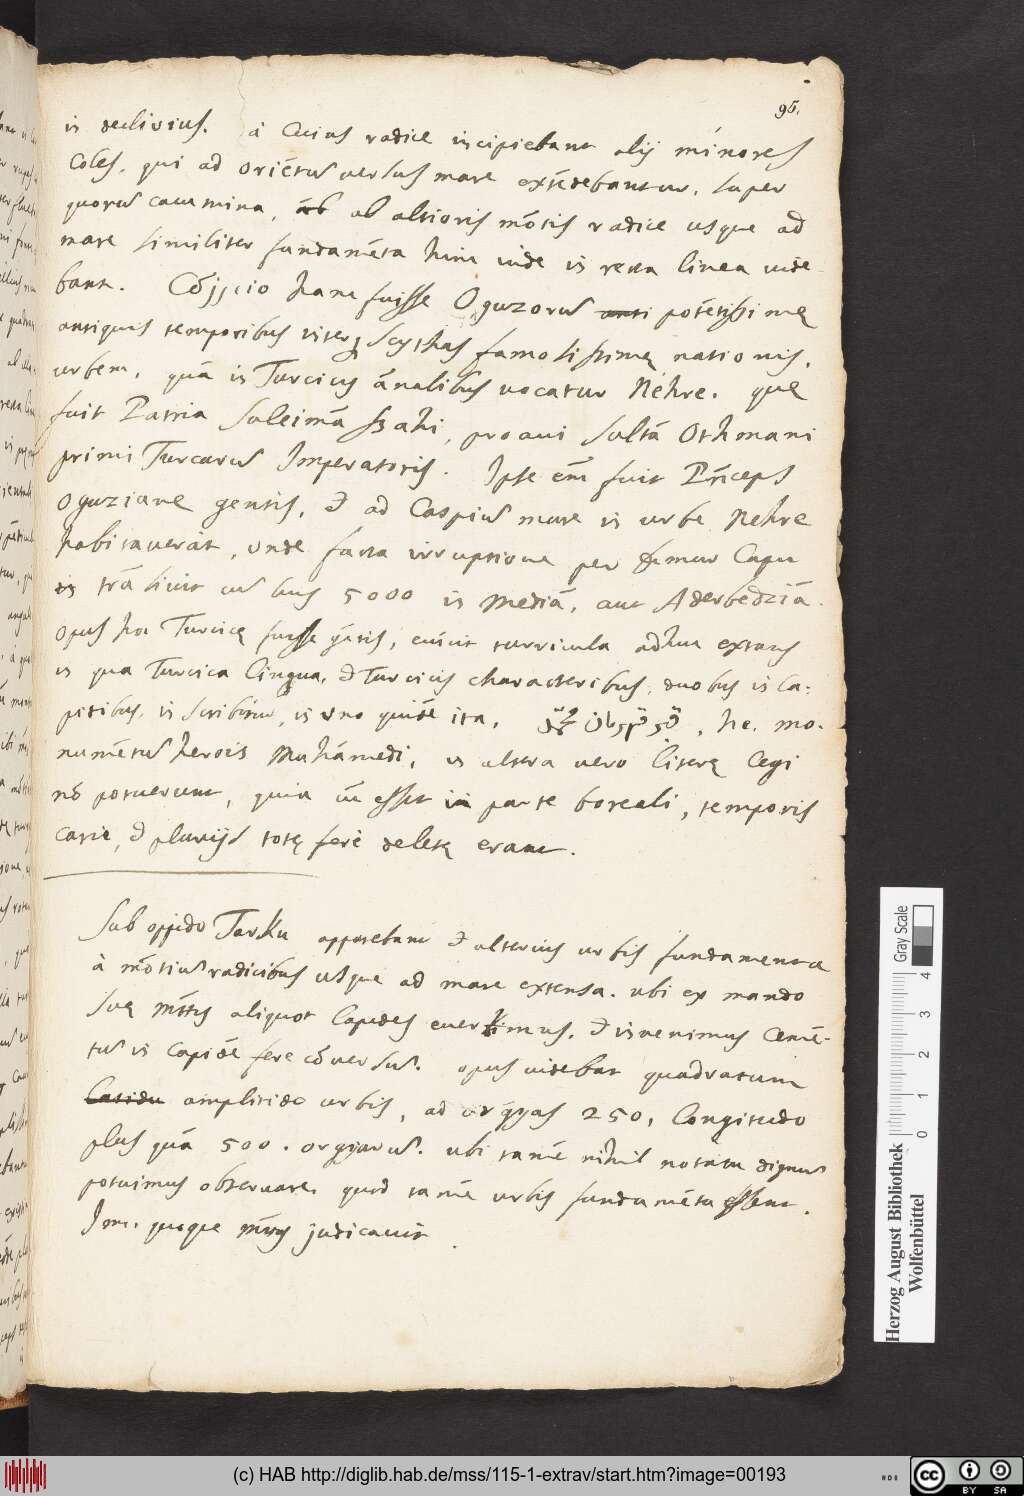 95.
in declivius. à Cuius radice incipiebant alij minores
Coles, qui ad oriẽtũ versus mare extẽdebantur, super
quorũ cacumina, ab ab altioris mõtis radice usque ad
mare similiter fundamẽta hinc inde in recta linea vide-
bant. Cõjicio hanc fuisse Oguzorũ anti potẽtissimę
antiquis temporibus inter Scythas famosissimę nationis,
urbem, quã in Turcicis ãnalibus vocatur Nehre. quę
fuit Patria Suleimã Szahi, proavi Sultã Othmani
primi Turcarũ Imperatoris. Ipse em̃ fuit Prĩceps
Oguzianę gentis, & ad Caspiũ mare in urbe Nehre
habitaverat, unde facta irruptione per Demur Capu
trãsivit cũ suis 5000 in Mediã, aut Aderbedziã.
opus hoc Turcicę fuisse gẽtis, turricula adhuc extans
in qua Turcica lingua, & Turcicis characteribus, duobus in la-
pidibus, in scribitur, in uno quidẽ ita, , h.e. mo-
numẽtũ herois Muhámedi, in altera vero literę legi
nõ potuerunt, quia cũ esset in parte boreali, temporis
carie, & pluvijs totę ferè deletę erant.
Sub oppido Tarku apparebant & alterius urbis fundamenta
à mõtiũ radicibus usque ad mare extensa. ubi ex mando
Suę Mttis aliquot lapides evertimus, & invenimus Cemẽ-
tũ in lapidẽ fere cõversũ. opus videbat quadratum
Latidu amplitido urbis, ad orgyas 250, Longitudo
plus quã 500. orgyarũ. ubi tamẽ nihil notatu dignũ
potuimus observare. quod tamẽ urbis fundamẽta essent.
judicavit.
Herzog August Bibliothek
Wolfenbüttel
Gray Scale
0 1 2 3 4
(c) HAB http://diglib.hab.de/mss/115-1-extrav/start.htm?image=00193
cc BY SA